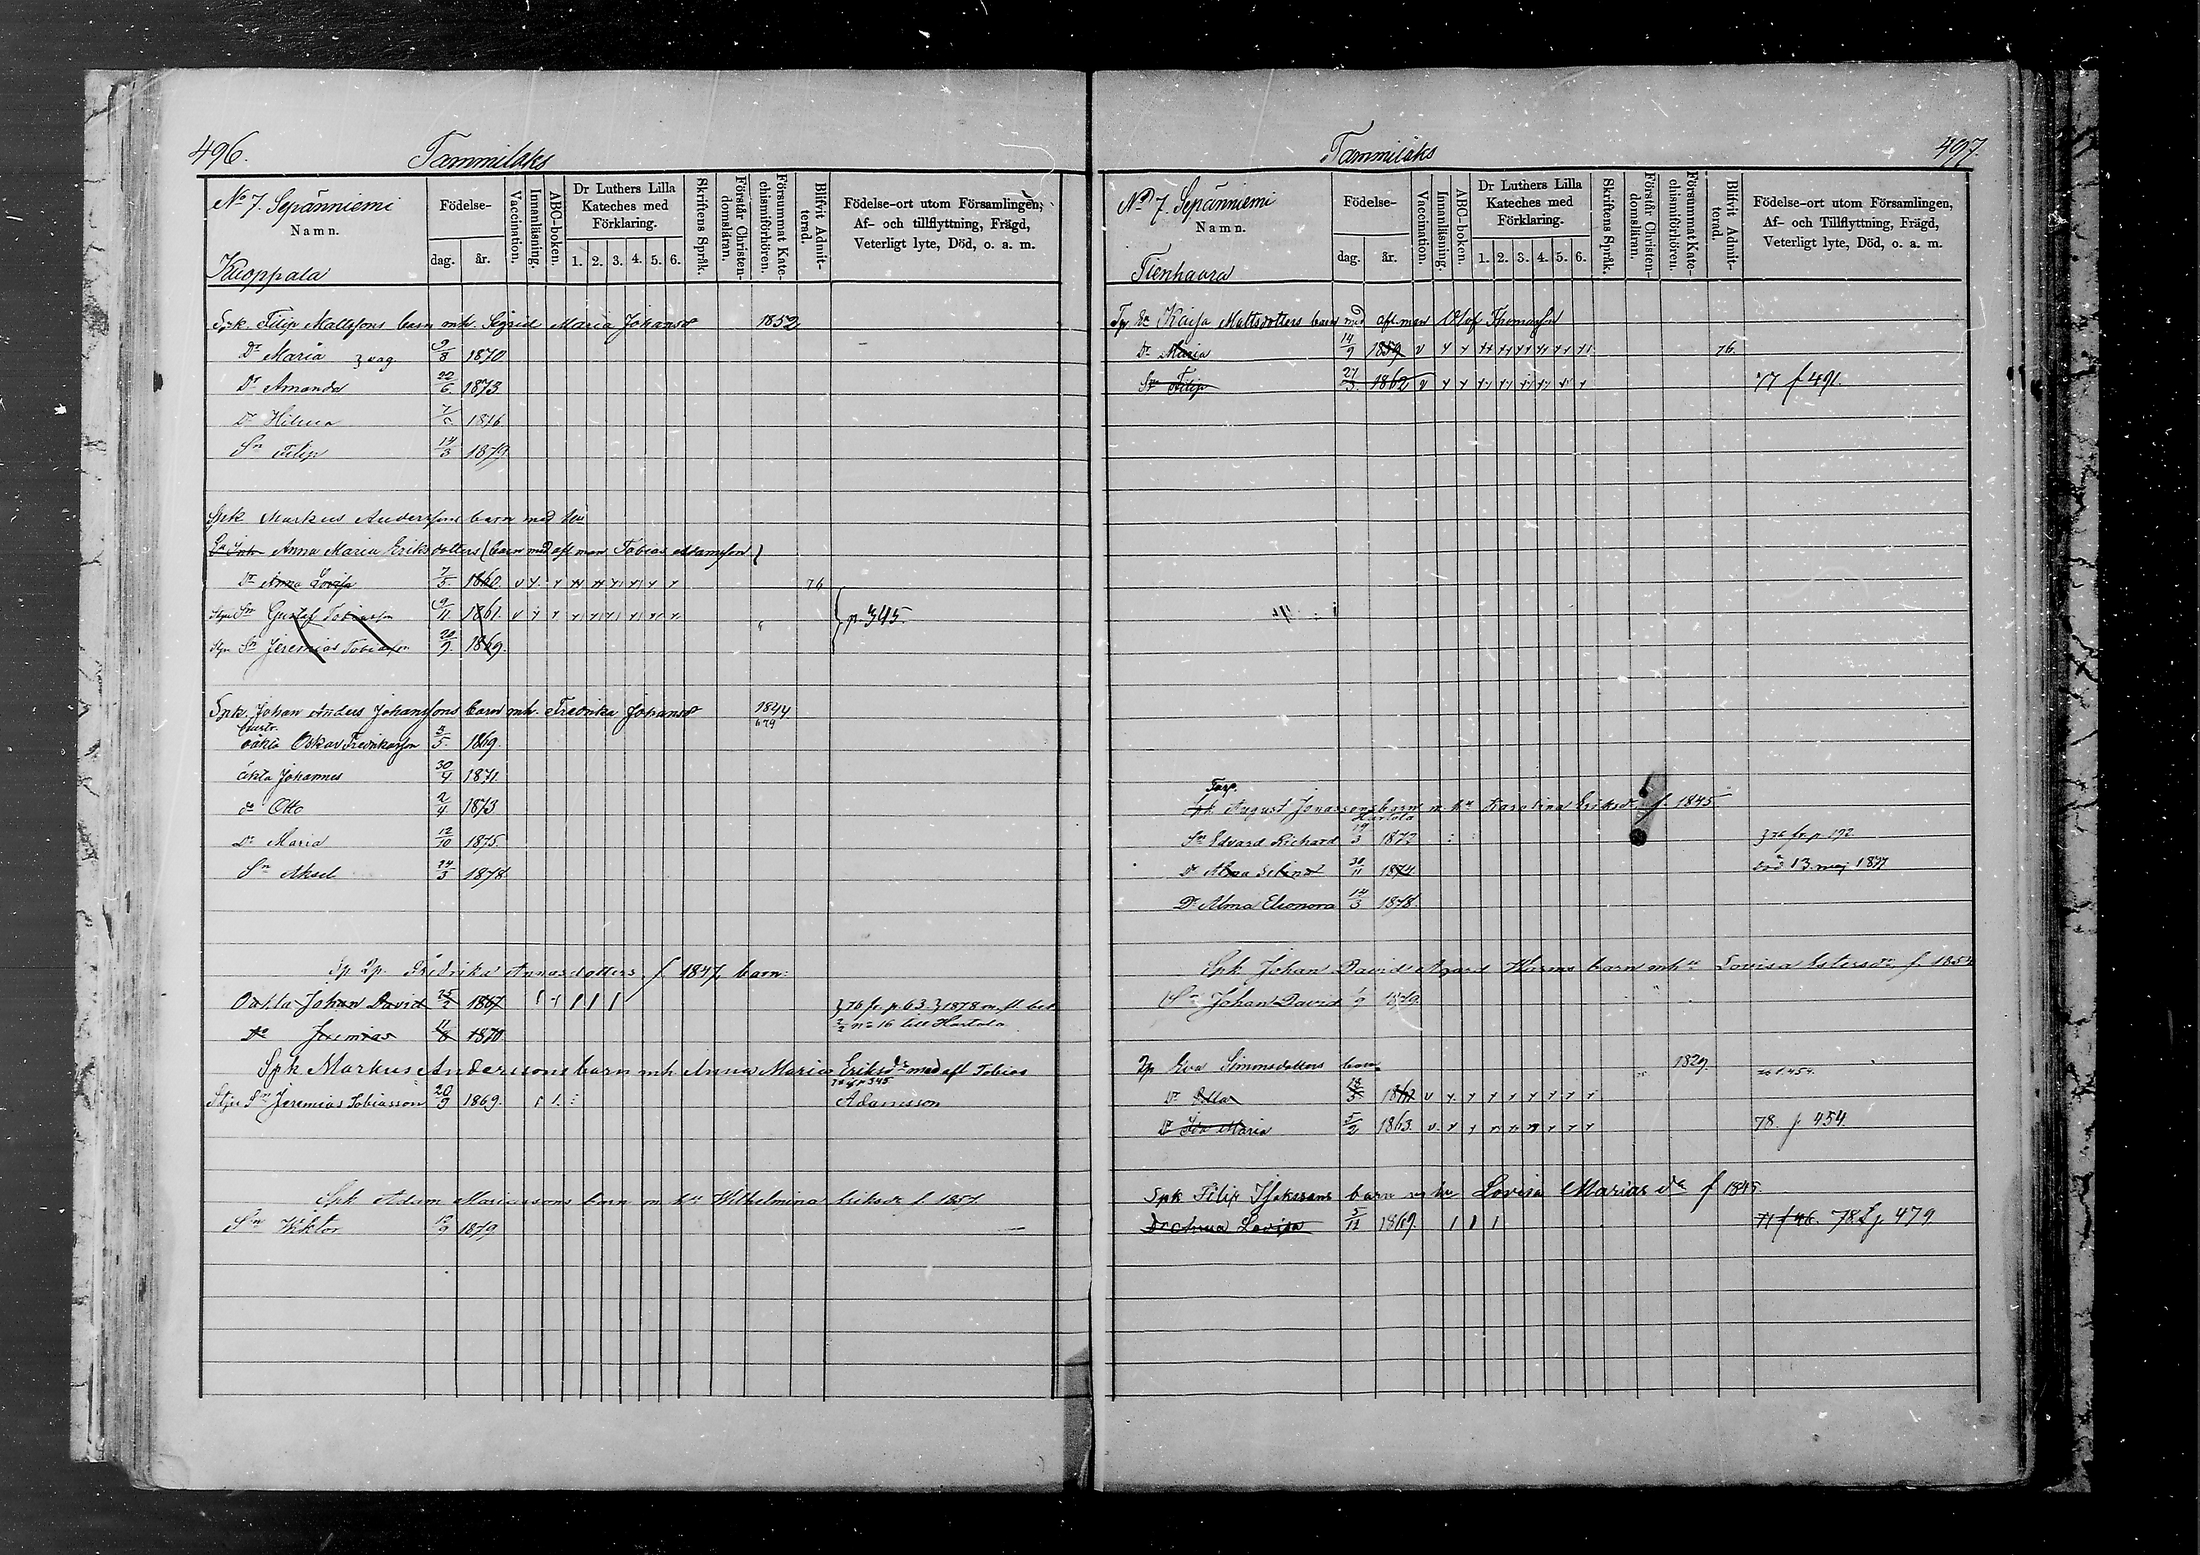 496.
Tammilaks
No 7. Sepänniemi
Namn.
Kuoppala
Födelse-
dag.
år.
Vaccination.
Innanläsning.
ABC-boken.
Dr Luthers Lilla
Kateches med
Förklaring.
1. 2. 3. 4. 5. 6.
Skriftens Språk.
Förstår Christen-
domsläran.
Försummat Kate-
chismiförhören.
Blifvit Admit-
terad.
Födelse-ort utom Församlingen,
Af- och tillflyttning, Frägd,
Veterligt lyte, Död, o. a. m.
Spk. Filip Mattssons barn mh. Sigrid Maria Johansdr 1852
Dr Maria 9/3 1870
Dr Amanda 22/6 1873
Dr Hilma 1876
Sn Filip 14/3 1879
Spk. Markus Anderssons barn med hu
Anna Maria Eriksdotters (barn med afl. man Tobias Adamsson)
Dr Anna Lovisa 7/5 1860. v y y 76
Sn Gustaf Tobiasson 9/11 1861. v y y p 345.
Sn Jeremias Tobiasson 20/9 1869.
Spk. Johan Anders Johanssons barn mh. Fredrika Johansdr 1844
oäkta Oskar Fredrikasson 5/5 1869.
äkta Johannes 30/4 1871
do Otto 2/4 1873
Dr Maria 12/10 1875.
Sn Aksel 24/3 1878
Fredrika Annasdotters f. 1847 barn:
Oäkta Johan David 25/2 1867 76 fr. p. 63. 1878 m. fl. bet
Do Jeremias 11/8 1870 2/2 no 16 till Hartola
Spk Markus Anderssons barn mh Anna Maria Eriksdr med afl Tobias
Sn Jeremias Tobiasson 20/9 1869. Adamsson
Spk Adam Mariassons barn m hu Wilhelmina Eriksdr f. 1857
Sn Viktor 1879
497.
Tammilaks
No 7. Sepänniemi
Namn.
Tienhaara
Födelse-
dag.
år.
Vaccination.
Innanläsning.
ABC-boken.
Dr Luthers Lilla
Kateches med
Förklaring.
1. 2. 3. 4. 5. 6.
Skriftens Språk.
Förstår Christen-
domsläran.
Försummat Kate-
chismiförhören.
Blifvit Admit-
terad.
Födelse-ort utom Församlingen,
Af- och Tillflyttning, Frägd,
Veterligt lyte, Död, o. a. m.
Kaisa Mattsdotters barn med afl. man Olof Thomasson
Dr Maria 14/9 1859 v y y 76.
Sn Filip 27/3 1862 v y y 77 f 491.
Torp.
August Jonassons barn m. hu Karolina Eriksdr f. 1845
Hartola
Sn Edvard Richard 19/3 1872 76 fr. p 192
Dr Alma Selina 30/11 1874. död 13 maj 1877
Dr Alma Eleonora 14/3 1878.
Spk Johan David Harms barn mhu Lovisa Estersdr f. 1854
Sn Johan David 1879.
Eva Simonsdotters barn 1829.
Dr Ulla 1862 v y y
Dr Ida Maria 5/2 1863. v y y 78. f. 454.
Spk Filip barn m hu Lovisa Mariasdr f 1845
Dr Anna Lovisa 5/12 1869. 77 f 46. 78 f. 479